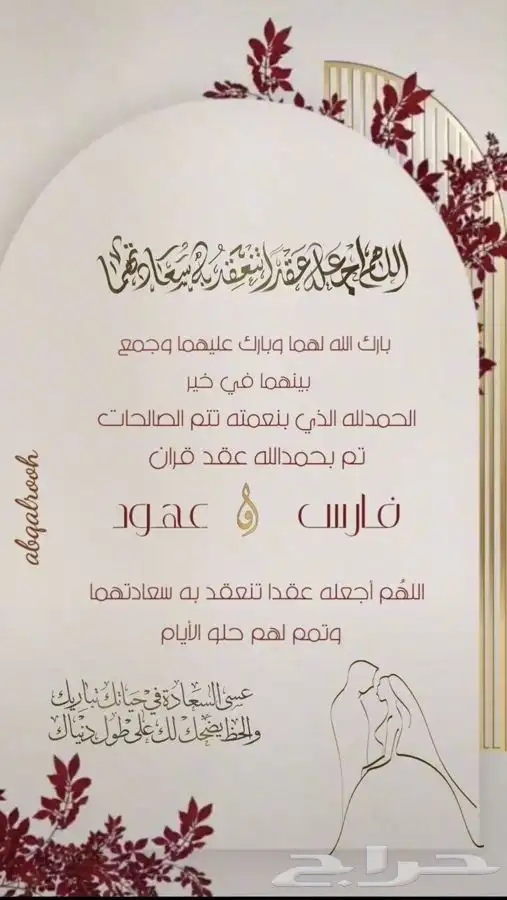 اللهم اجعله عقدا تنعقد به سعادتهما
بارك الله لهما وبارك عليهما وجمع
بينهما في خير
الحمدلله الذي بنعمته تتم الصالحات
تم بحمدالله عقد قران
فارس و عهود
اللهُم أجعله عقدا تنعقد به سعادتهما
وتمم لهم حلو الأيام
عسى السعادة في حياتك تباريك
والحظ يضحك لك على طول دنياك
abqalrooh
حراج